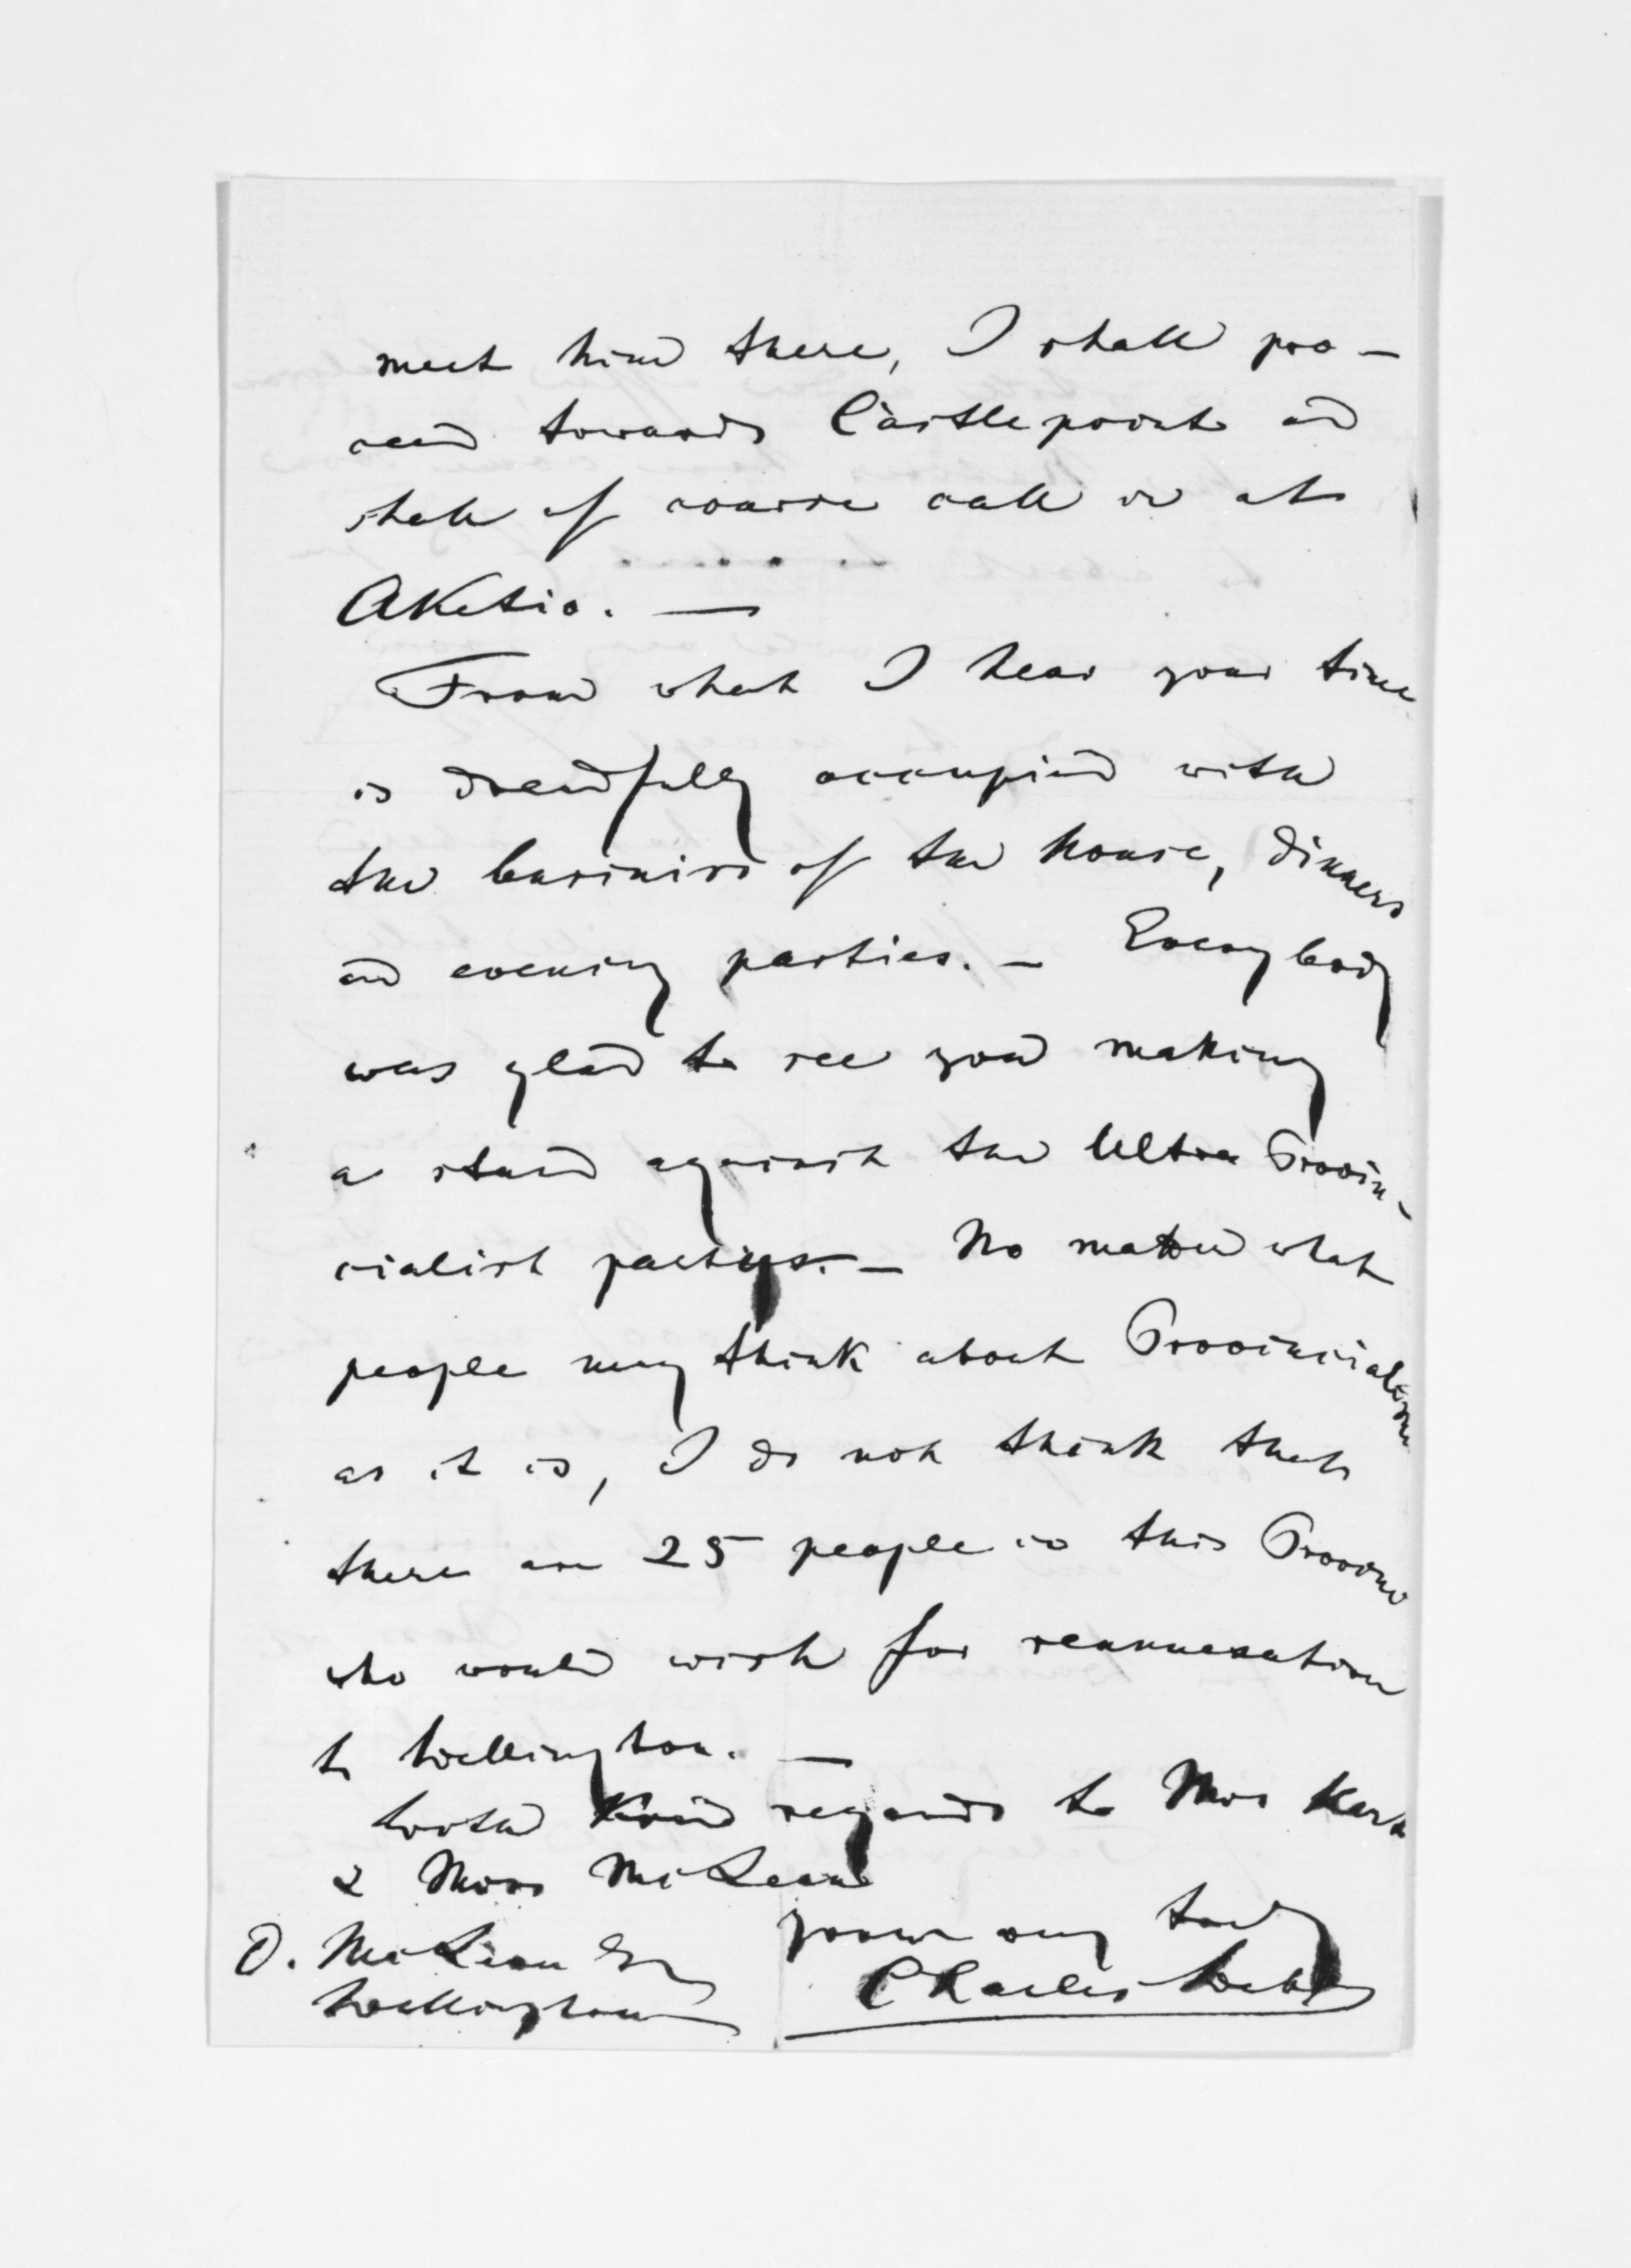 meet him there, I shall pro-
ceed towards Castlepoint and
shall of course call in at
Aketio. —
From what I hear your time
is dreadfully occupied with
the business of the house, dinners
and evening parties. — Everybody
was glad to see you making
a stand against the Ultra Provin-
cialist parties. — No matter what
people may think about Provincialism
as it is, I do not think that
there are 25 people in this Province
who would wish for reannexation
to Wellington. —
With kind regards to Mrs Hart
& Miss McLean
yours very truly
Charles Weber
D. McLean Esq
Wellington